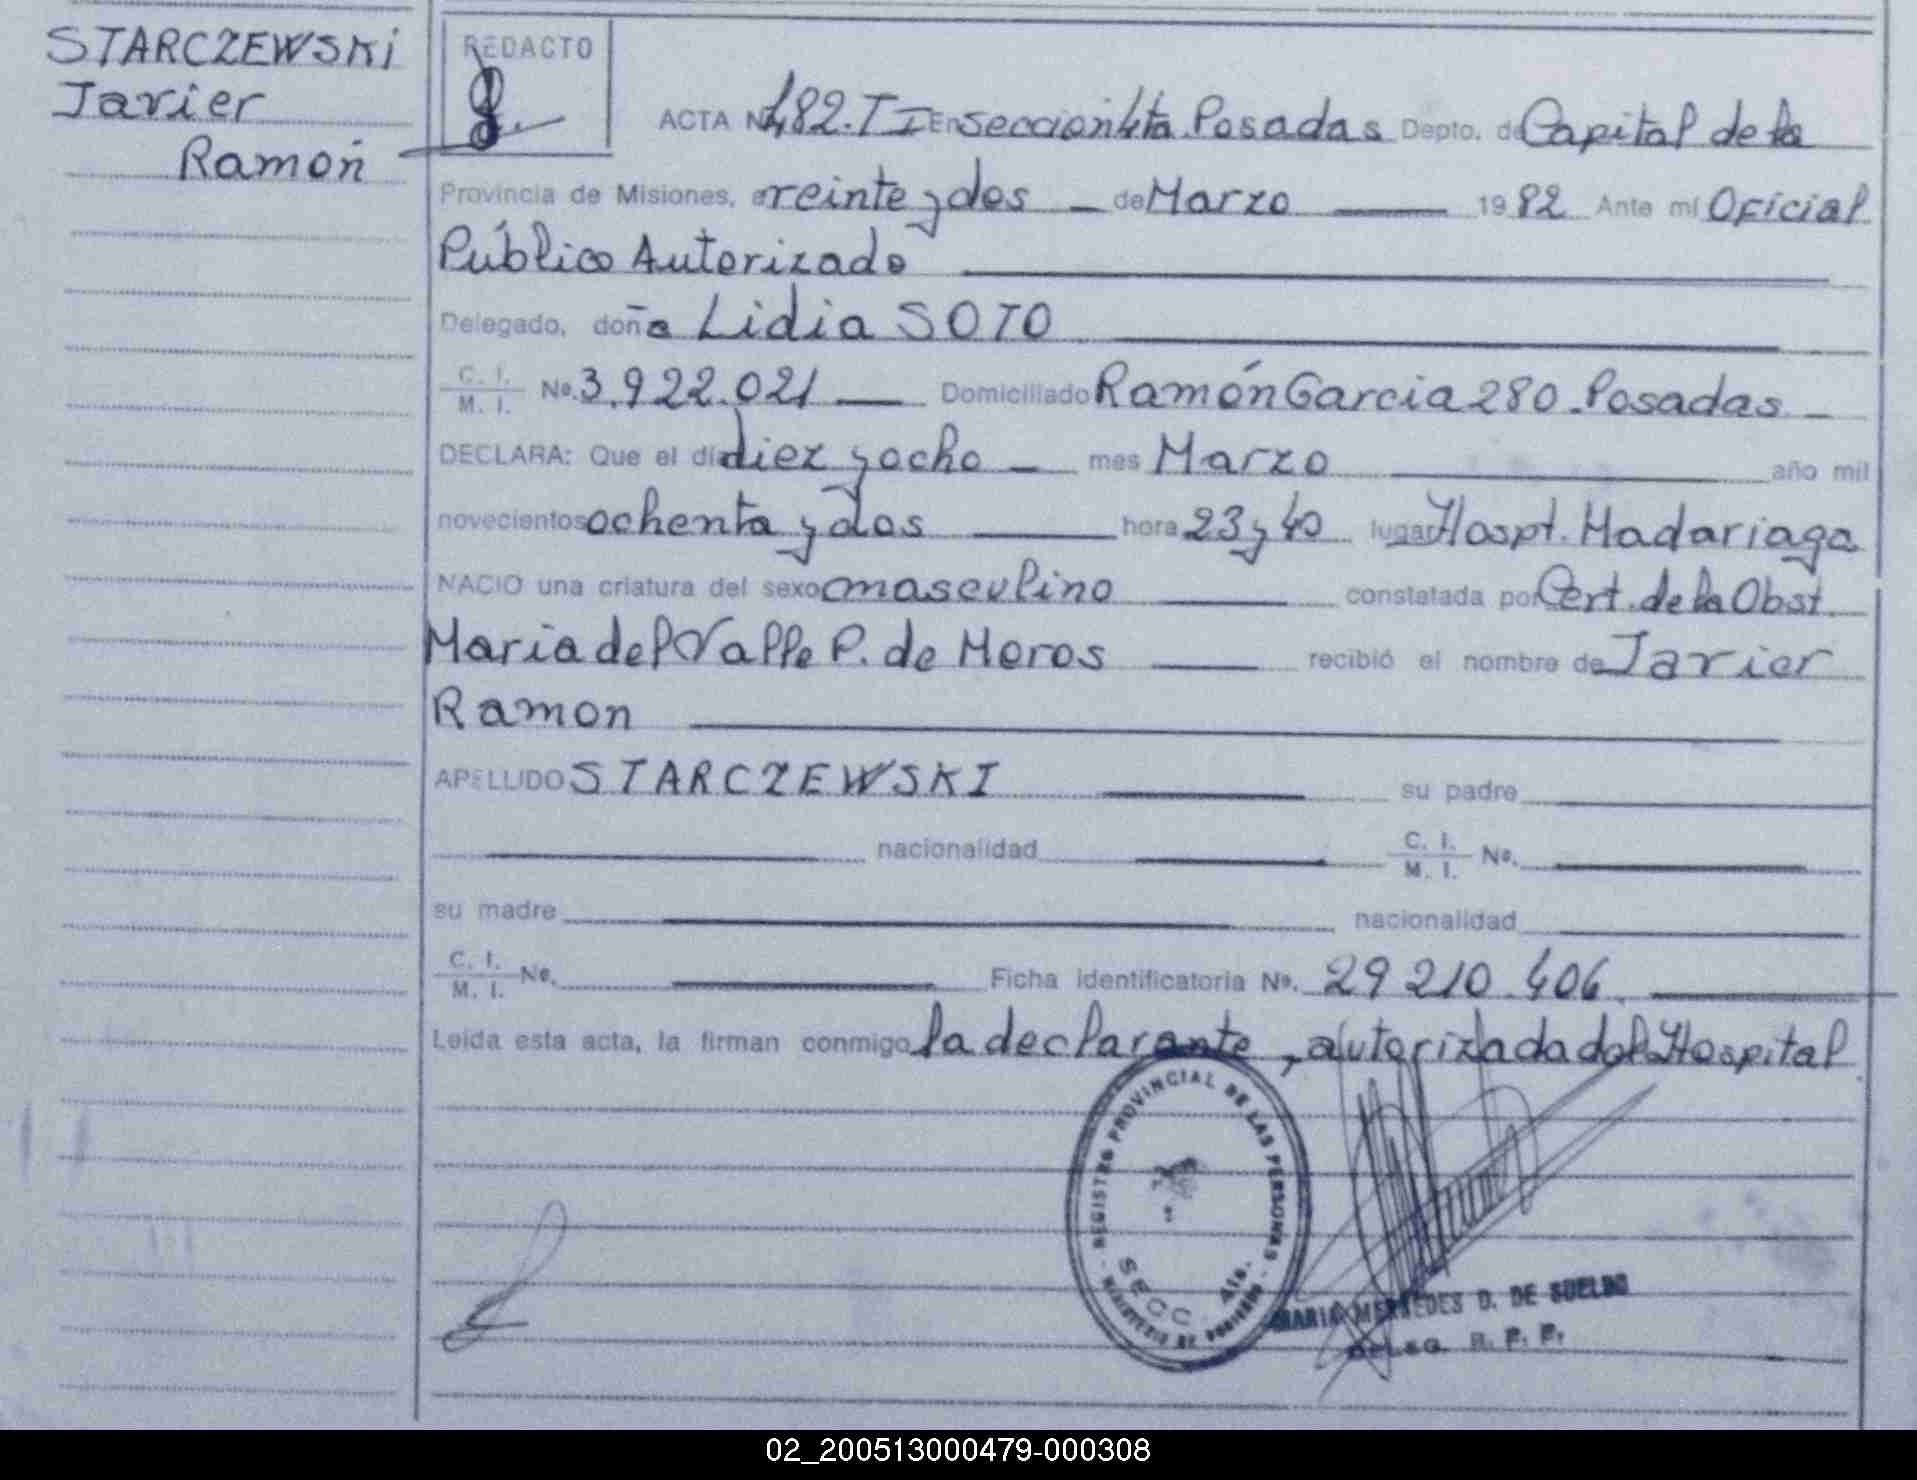 STARCZEWSKI
Javier
Ramón
REDACTO
ACTA Nº 482. T I En sección 4ta Posadas Depto. de Capital de la
Provincia de Misiones, a veinte y dos de Marzo 1982 Ante mí Oficial
Público Autorizado
Delegado, doña Lidia SOTO
C. I. M. I. Nº. 3.922.021 Domiciliado Ramón Garcia 280. Posadas
DECLARA: Que el día diez y ocho mes Marzo año mil
novecientos ochenta y dos hora 23 y 40 lugar Hospt. Madariaga
NACIO una criatura del sexo masculino constatada por Cert. de la Obst
Maria del Valle P. de Meros recibió el nombre de Javier
Ramon
APELLIDO STARCZEWSKI su padre
nacionalidad C. I. M. I. Nº.
su madre nacionalidad
C. I. M. I. Nº. Ficha identificatoria Nº. 29 210.406
Leída esta acta, la firman conmigo la declarante, autorizada del Hospital
REGISTRO PROVINCIAL DE LAS PERSONAS
SECC. 4ta.
MINISTERIO DE GOBIERNO
MARIA MERCEDES D. DE SUELDO
DELEG. R. P. P.
02_200513000479-000308